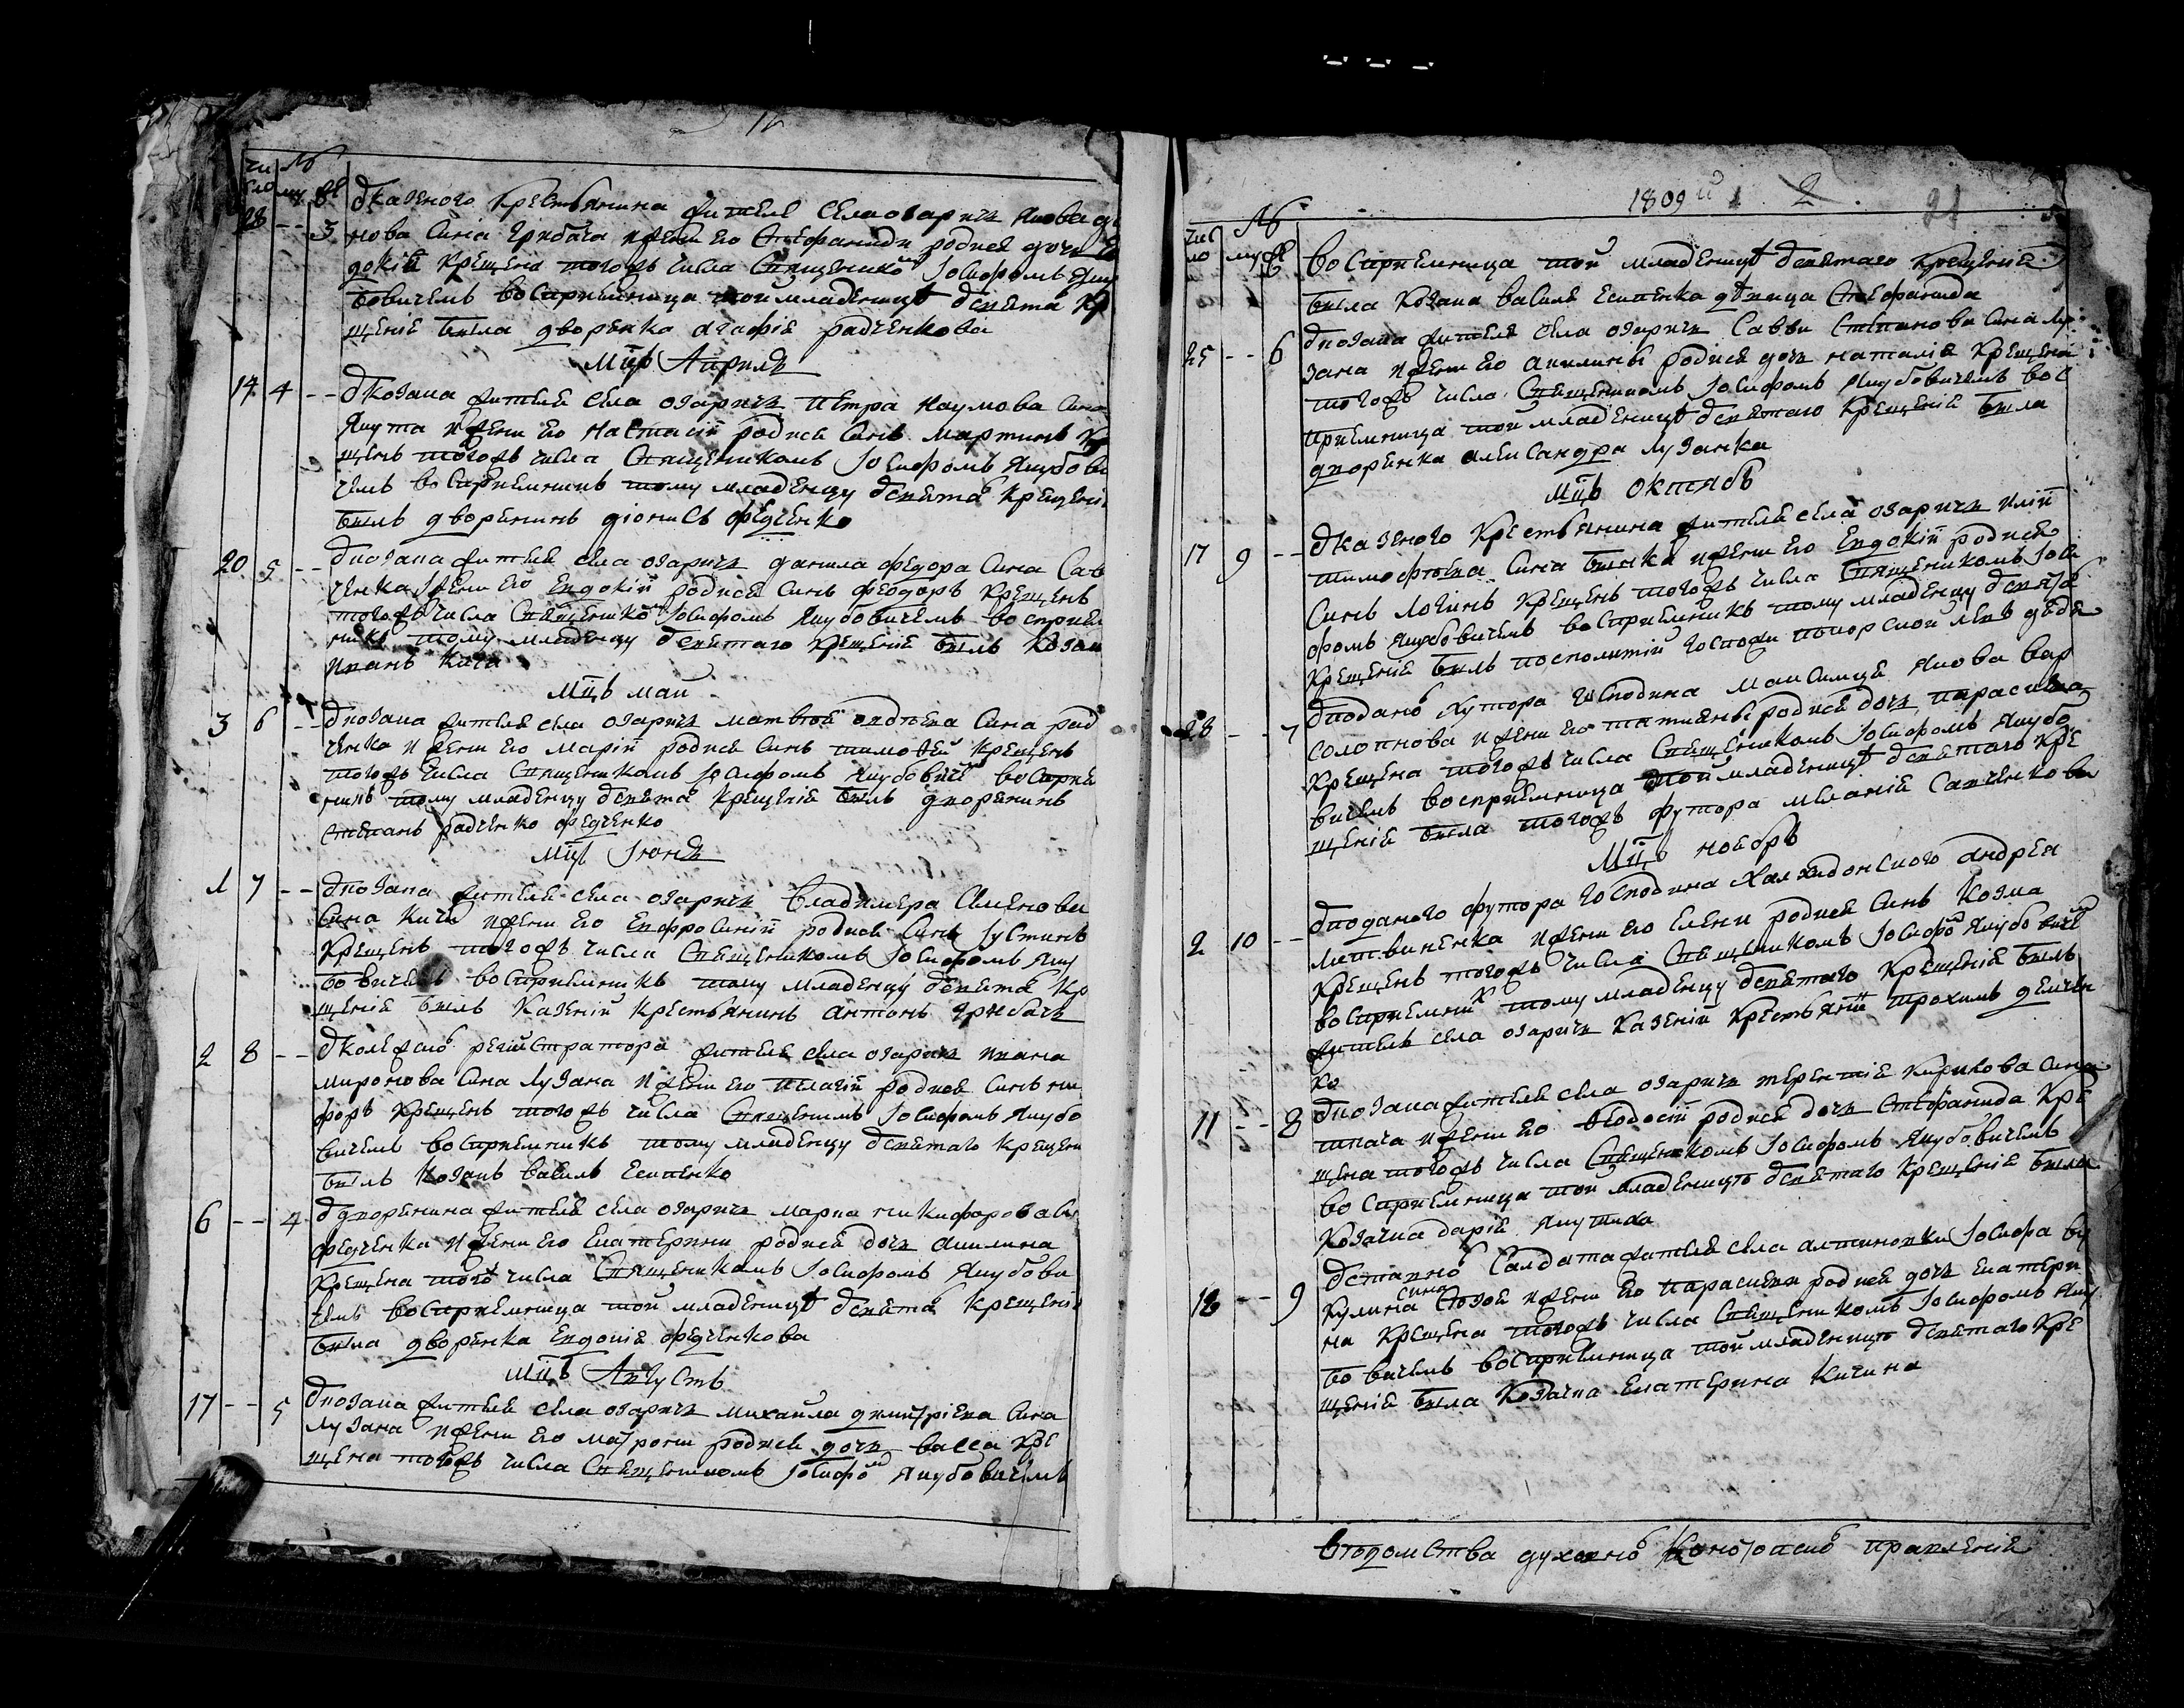 чи
сло
№
му же
28 -- 3 У казеного крестьянина жителя села озаричъ якова
нова сина Грибача и жени его Стефаниди родися дочь Ев
докія крещена того жъ числа священико Іосифомъ Яку
бовичемъ восприемница той младеницѣ у свята кр
щенія была дворянка агафія радченкова
Мцъ Априль
14 4 -- У козака жителя села озаричъ петра наумова сина
якута и жени его настасіи родися синъ мартинъ кр
щенъ того жъ числа священикомъ Іосифомъ якубови
чемъ восприемникъ тому младенцу у свята крещенія
былъ дворянинъ діонисъ федченко
20 5 -- У козака жителя села озаричъ данила федора сина Сав
ченка жени его Евдокіи родися синъ феодоръ крещенъ
того жъ числа священико Іосифомъ якубовичемъ восприем
никъ тому младенцу у святаго крещенія былъ козак
иванъ кича
Мцъ маи
3 6 -- У козака жителя села озаричъ матвѣя сина рад
ченка и жени его маріи родися синъ тимофей крещенъ
того жъ числа священикомъ Іосифомъ якубовиче восприе
никъ тому младенцу у свята крещенія былъ дворянинъ
степанъ радченко федченко
Мцъ Іюнь
1 7 -- У козака жителя села озаричъ владимера Семенова
сина кичи и жени его Евфросиніи родися синъ Іустинъ
крещенъ того жъ числа священикомъ Іосифомъ яку
бовичемъ восприемникъ тому младенцу у свята кр
щенія былъ казеній крестьянинъ антонъ грибачъ
2 8 -- У колежско регистратора жителя села озаричъ ивана
миронова сина лузана и жени его пелагіи родися синъ ники
форъ крещенъ того жъ числа священикомъ Іосифомъ якубо
вичемъ восприемникъ тому младенцу у святаго крещени
былъ козакъ василь Есипенко
6 -- 4 У дворянина жителя села озаричъ марка никифорова си
федченка и жени его Екатерини родися дочь акилина
крещена того числа священикомъ Іосифомъ якубови
чемъ восприемница той младеницѣ у свята крещенія
была дворянка Евдокія федченкова
Мцъ Августъ
17 -- 5 У козака жителя села озаричъ михаила димитріева сина
лузана и жени его матрони родися дочь васса кре
щена того жъ числа священикомъ Іосифо якубовичемъ
1809 2 21
чис
ло
№
му же
восприемница той младеницѣ у святаго крещенія
была козака василя Есипенка дѣвица Стефанида
25 -- 6 У козака жителя села озаричъ Савви Степанова сина лу
зана и жени его акилины родися дочь наталія крещена
того жъ числа священикомъ Іосифомъ якубовичемъ вос
приемница той младеницѣ у святаго крещенія была
дворянка александра лузанка
Мцъ октябъ
17 9 -- У казеного крестьянина жителя села озаричъ иліи
тимофѣева сина бичка и жени его Евдокіи родися
синъ логинъ крещенъ того жъ числа священикомъ Іоси
фомъ якубовичемъ восприемникъ тому младенцу у свята
крещенія былъ посполитій
28 -- 7 У подано хутора господина якова вар
соломѣева и жени его татіяны родися дочь параскева
крещена того жъ числа священикомъ Іосифомъ якубо
вичемъ восприемница той младеницѣ у святаго кре
щенія была того жъ футора меланія савченкова
Мцъ ноябръ
2 10 -- У поданого футора господина Халкидонского андрея
литвиненка и жени его Елени родися синъ козма
крещенъ того жъ числа священикомъ Іосифо якубовиче
восприемник тому младенцу у святаго крещенія былъ
житель села озаричъ казеній крестьянин трохимъ демчен
ко
11 -- 8 У козака жителя села озаричъ терентія кирикова сина
шпача и жени его Ѳеодосіи родися дочь Стефанида кре
щена того жъ числа священикомъ Іосифомъ якубовичемъ
восприемница той младеницѣ у святаго крещенія была
козачка дарія якутиха
18 -- 9 У отставно салдата жителя села алтиновки Іосифа
кулика сина и жени его параскеви родися дочь Екатери
на крещена того жъ числа священикомъ Іосифомъ яку
бовичемъ восприемница той младеницѣ у святаго кре
щенія была козачка Екатерина кичина
вѣдомства духовно Конотопско правленія